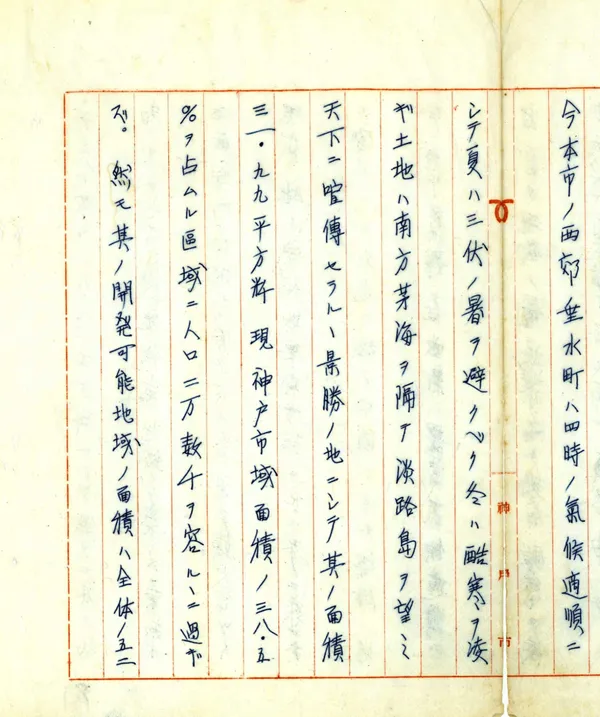 今本市ノ西郊垂水町ハ四時ノ氣候適順ニ
シテ夏ハ三伏ノ暑ヲ避クベク冬ハ酷寒ヲ凌
ギ土地ハ南方茅海ヲ隔テ淡路島ヲ望ミ
天下ニ喧傳セラルヽ景勝ノ地ニシテ其ノ面積
三一・九九平方粁現神戸市域面積ノ三八・五
%ヲ占ムル區域ニ人口二万数千ヲ容ルヽニ過ギ
ズ。然モ其ノ開発可能地域ノ面積ハ全体ノ五二
神戸市